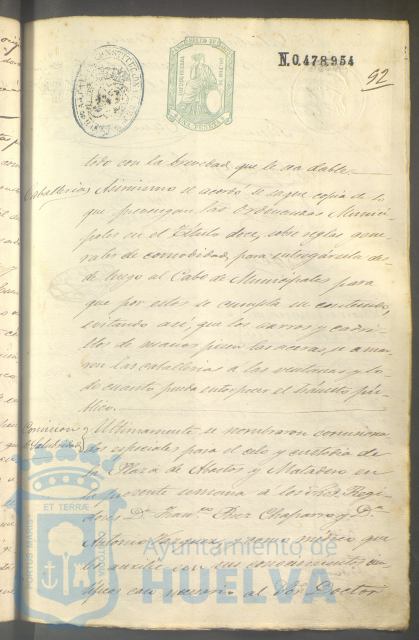 N. 0.478,954
92
todo con la brevedad que le sea dable.
Caballerias Asimismo se acordó se saque copia de lo
que previenen las Ordenanzas Munici-
pales en el Título doce, sobre reglas gene-
rales de comodidad, para entregársela des-
de luego al Cabo de Municipales para
que por estos se cumpla su contenido,
evitando así, que los carros y carri-
tos de manos pisen las aceras, se amar-
ren las caballerias a las ventanas y to-
do cuanto pueda entorpecer el tránsito pú-
blico.
Comision Y Ultimamente se nombraron comisiona-
dos especiales para el celo y custodia de
la Plaza de Abastos y Matadero en
la presente semana a los Sres. Regi-
dores Dn. Franco. Chaparro y Dn.
Antonio Vazquez, y como médico que
les auxilie con sus conocimientos en
caso necesario al Sor. Doctor
PORTUS MARIS
ET TERRÆ
CUSTODIA
Ayuntamiento de
HUELVA